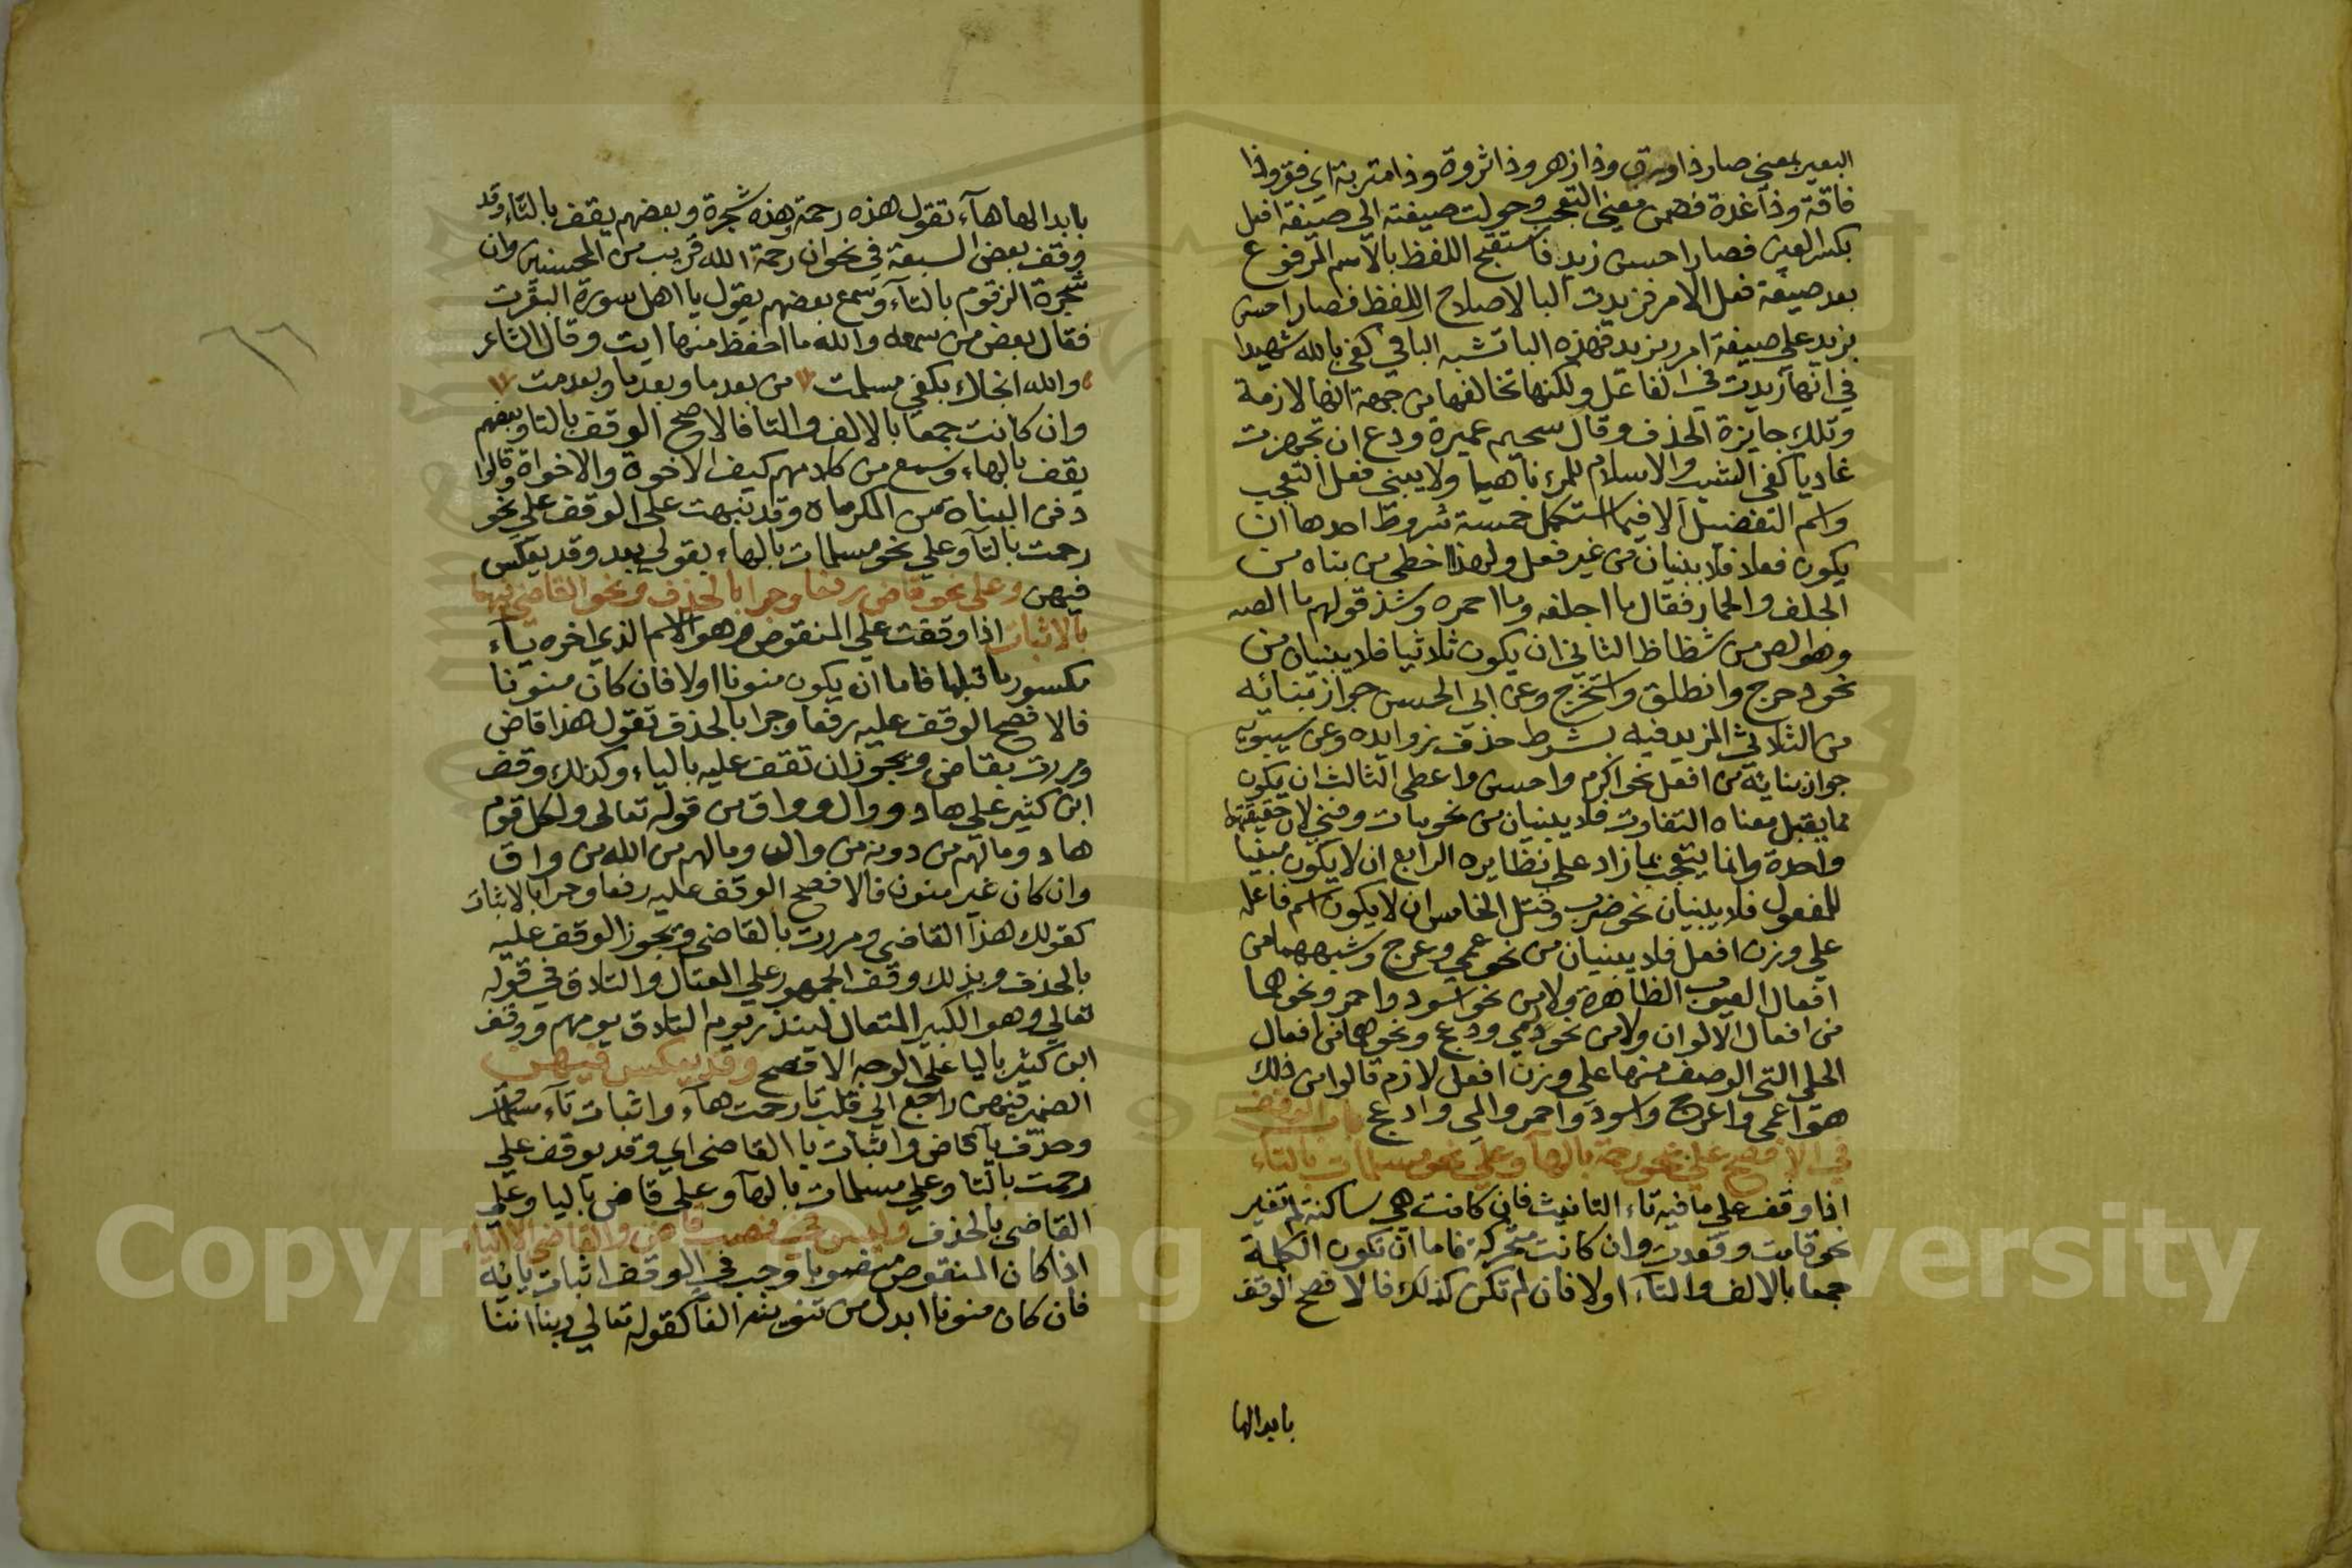 البعير بمعنى صار ذا ورق وذا زهر وذا ثروة وذا متربة اي فقر وذا
فاقة وذا غدة فضمن معنى التعجب وحولت صيغته الى صيغة افعل
بكسر العين فصار احسن زيد فاستقبح اللفظ بالاسم المرفوع
بعد صيغة فعل الامر فزيدت البا لاصلاح اللفظ فصار احسن
بزيد على صيغة امرر بزيد فهذه البا تشبه البا في كفى بالله شهيدا
في انها زيدت في الفاعل ولكنها تخالفها من جهة انها لازمة
وتلك جايزة الحذف وقال سحيم عميرة ودع ان تجهزت
غاديا كفى الشيب والاسلام للمرء ناهيا ولا يبنى فعل التعجب
واسم التفضيل الا فيما استكمل خمسة شروط احدها ان
يكون فعلا فلا يبنيان من غير فعل ولهذا خطي من بناه من
الجلف والحمار فقال ما اجلفه وما احمره وشذ قولهم ما الصه
وهو الص من شظاظ الثاني ان يكون ثلاثيا فلا يبنيان من
نحو دحرج وانطلق واستخرج وعن ابى الحسن جواز بنائه
من الثلاثي المزيد فيه بشرط حذف زوايده وعن سيبويه
جواز بنايه من افعل نحو اكرم واحسن واعطى الثالث ان يكون
مما يقبل معناه التفاوت فلا يبنيان من نحو مات وفني لان حقيقتها
واحدة وانما يتعجب بما زاد على نظايره الرابع ان لا يكون مبنيا
للمفعول فلا يبنيان نحو ضرب وقتل الخامس ان لا يكون اسم فاعله
على وزن افعل فلا يبنيان من نحو عمي وعرج وشبههما من
افعال العيوب الظاهرة ولا من نحو اسود واحمر ونحوهما
من افعال الالوان ولا من نحو لمي ودعج ونحوهما من افعال
الحلي التى الوصف منها على وزن افعل لازم قالوا من ذلك
هو اعمى واعرج واسود واحمر والمى وادعج باب الوقف
في الافصح على نحو رحمة بالهآ وعلى نحو مسلمات بالتاء
اذا وقف على ما فيه تاء التانيث فان كانت هي ساكنة لم تغير
نحو قامت وقعدت وان كانت متحركة فاما ان تكون الكلمة
جمعا بالالف والتاء اولا فان لم تكن كذلك فالافصح الوقف
بابدالها
بابدالها هآء تقول هذه رحمة وهذه شجرة وبعضهم يقف بالتاء وقد
وقف بعض السبعة في نحو ان رحمة الله قريب من المحسنين وان
شجرة الزقوم بالتآء وسمع بعضهم يقول يا اهل سورة البقرت
فقال بعض من سمعه والله ما احفظ منها ايت وقال الشاعر
والله انجاك بكفي مسلمت من بعد ما وبعد ما وبعدمت
وان كانت جمعا بالالف والتا فالاصح الوقف بالتا وبعضهم
يقف بالهاء وسمع من كلامهم كيف الاخوة والاخواة وقالوا
دفن البناه من المكرماه وقد نبهت على الوقف على نحو
رحمت بالتآ وعلى نحو مسلمات بالهاء بقولي بعد وقد يعكس
فيهن وعلى نحو قاض رفعا وجرا بالحذف ونحو القاضي فيهما
بالاثبات اذا وقفت على المنقوص وهو الاسم الذي اخره يآء
مكسور ما قبلها فاما ان يكون منونا اولا فان كان منونا
فالافصح الوقف عليه رفعا وجرا بالحذف تقول هذا قاض
ومررت بقاض ويجوز ان تقف عليه بالياء وكذلك وقف
ابن كثير على هاد ووال وواق من قوله تعالى ولكل قوم
هاد وما لهم من دونه من وال وما لهم من الله من واق
وان كان غير منون فالافصح الوقف عليه رفعا وجرا بالاثبات
كقولك هذا القاضي ومررت بالقاضي ويجوز الوقف عليه
بالحذف وبذلك وقف الجمهور على المتعال والتلاق في قوله
تعالى وهو الكبير المتعال لينذر يوم التلاق يومهم ووقف
ابن كثير باليا على الوجه الافصح وقد يعكس فيهن
الضمير فيهن راجع الى قلب تا رحمت هآء واثبات تآء مسلمات
وحذف يآ قاض واثبات يا القاضي اي وقد يوقف على
رحمت بالتا وعلى مسلمات بالهآ وعلى قاض باليا وعلى
القاضي بالحذف وليس في نصب قاض والقاضي الا الياء
اذا كان المنقوص منصوبا وجب في الوقف اثبات يائه
فان كان منونا ابدل من تنوينه الفا كقوله تعالى ربنا اننا
Copyright © King Saud University